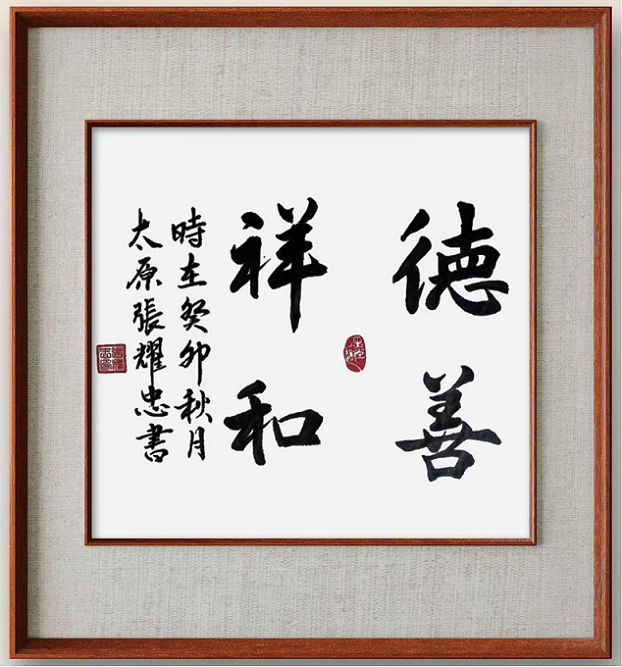 德善
祥和
時在癸卯秋月
太原張耀忠書